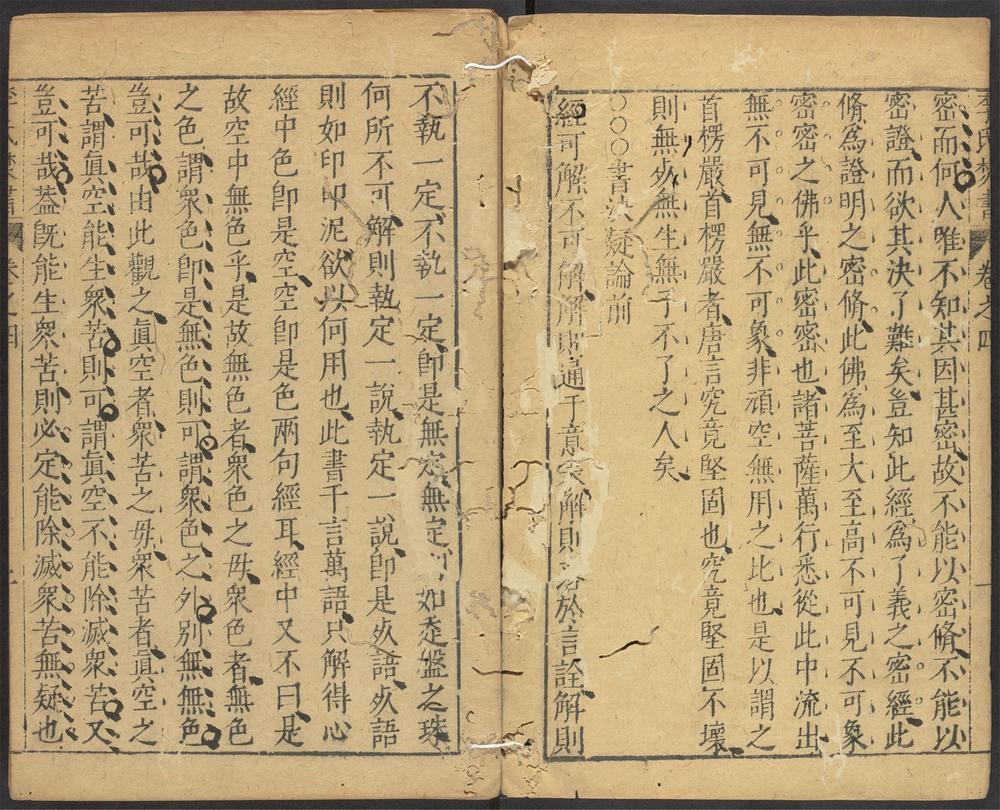 李氏焚書 卷之四
密而何人唯不知其因甚密故不能以密脩不能以
密證而欲其決了難矣豈知此經為了義之密經此
脩為證明之密脩此佛為至大至高不可見不可象
密密之佛乎此密密也諸菩薩萬行悉從此中流出
無不可見無不可象非頑空無用之比也是以謂之
首楞嚴首楞嚴者唐言究竟堅固也究竟堅固不壞
則無死無生無了不了之人矣
○○○書決疑論前
經可解不可解解則通于意表解則落於言詮解則
不執一定不執一定即是無定無定則如走盤之珠
何所不可解則執定一說執定一說即是死語死語
則如印印泥欲以何用也此書千言萬語只解得心
經中色即是空空即是色兩句經耳經中又不曰是
故空中無色乎是故無色者衆色之母衆色者無色
之色謂衆色即是無色則可謂衆色之外別無無色
豈可哉由此觀之真空者衆苦之母衆苦者真空之
苦謂真空能生衆苦則可謂真空不能除滅衆苦又
豈可哉葢既能生衆苦則必定能除滅衆苦無疑也
李氏焚書 卷之四